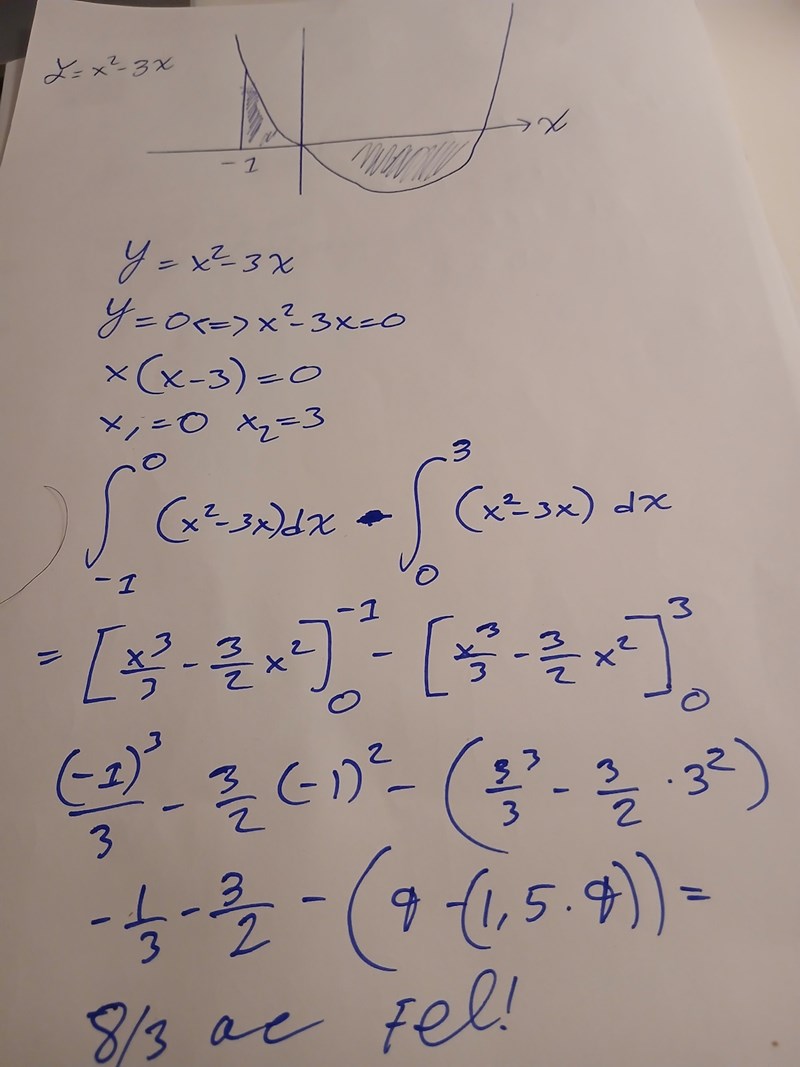 y = x² - 3x
x
-1
y = x² - 3x
y = 0 <=> x² - 3x = 0
x(x-3) = 0
x₁ = 0 x₂ = 3
∫₋₁⁰ (x² - 3x)dx - ∫₀³ (x² - 3x) dx
= [x³/3 - 3/2 x²]₀⁻¹ - [x³/3 - 3/2 x²]₀³
(-1)³/3 - 3/2 (-1)² - (3³/3 - 3/2 · 3²)
-1/3 - 3/2 - (9 - (1,5 · 9)) =
8/3 ae Fel!